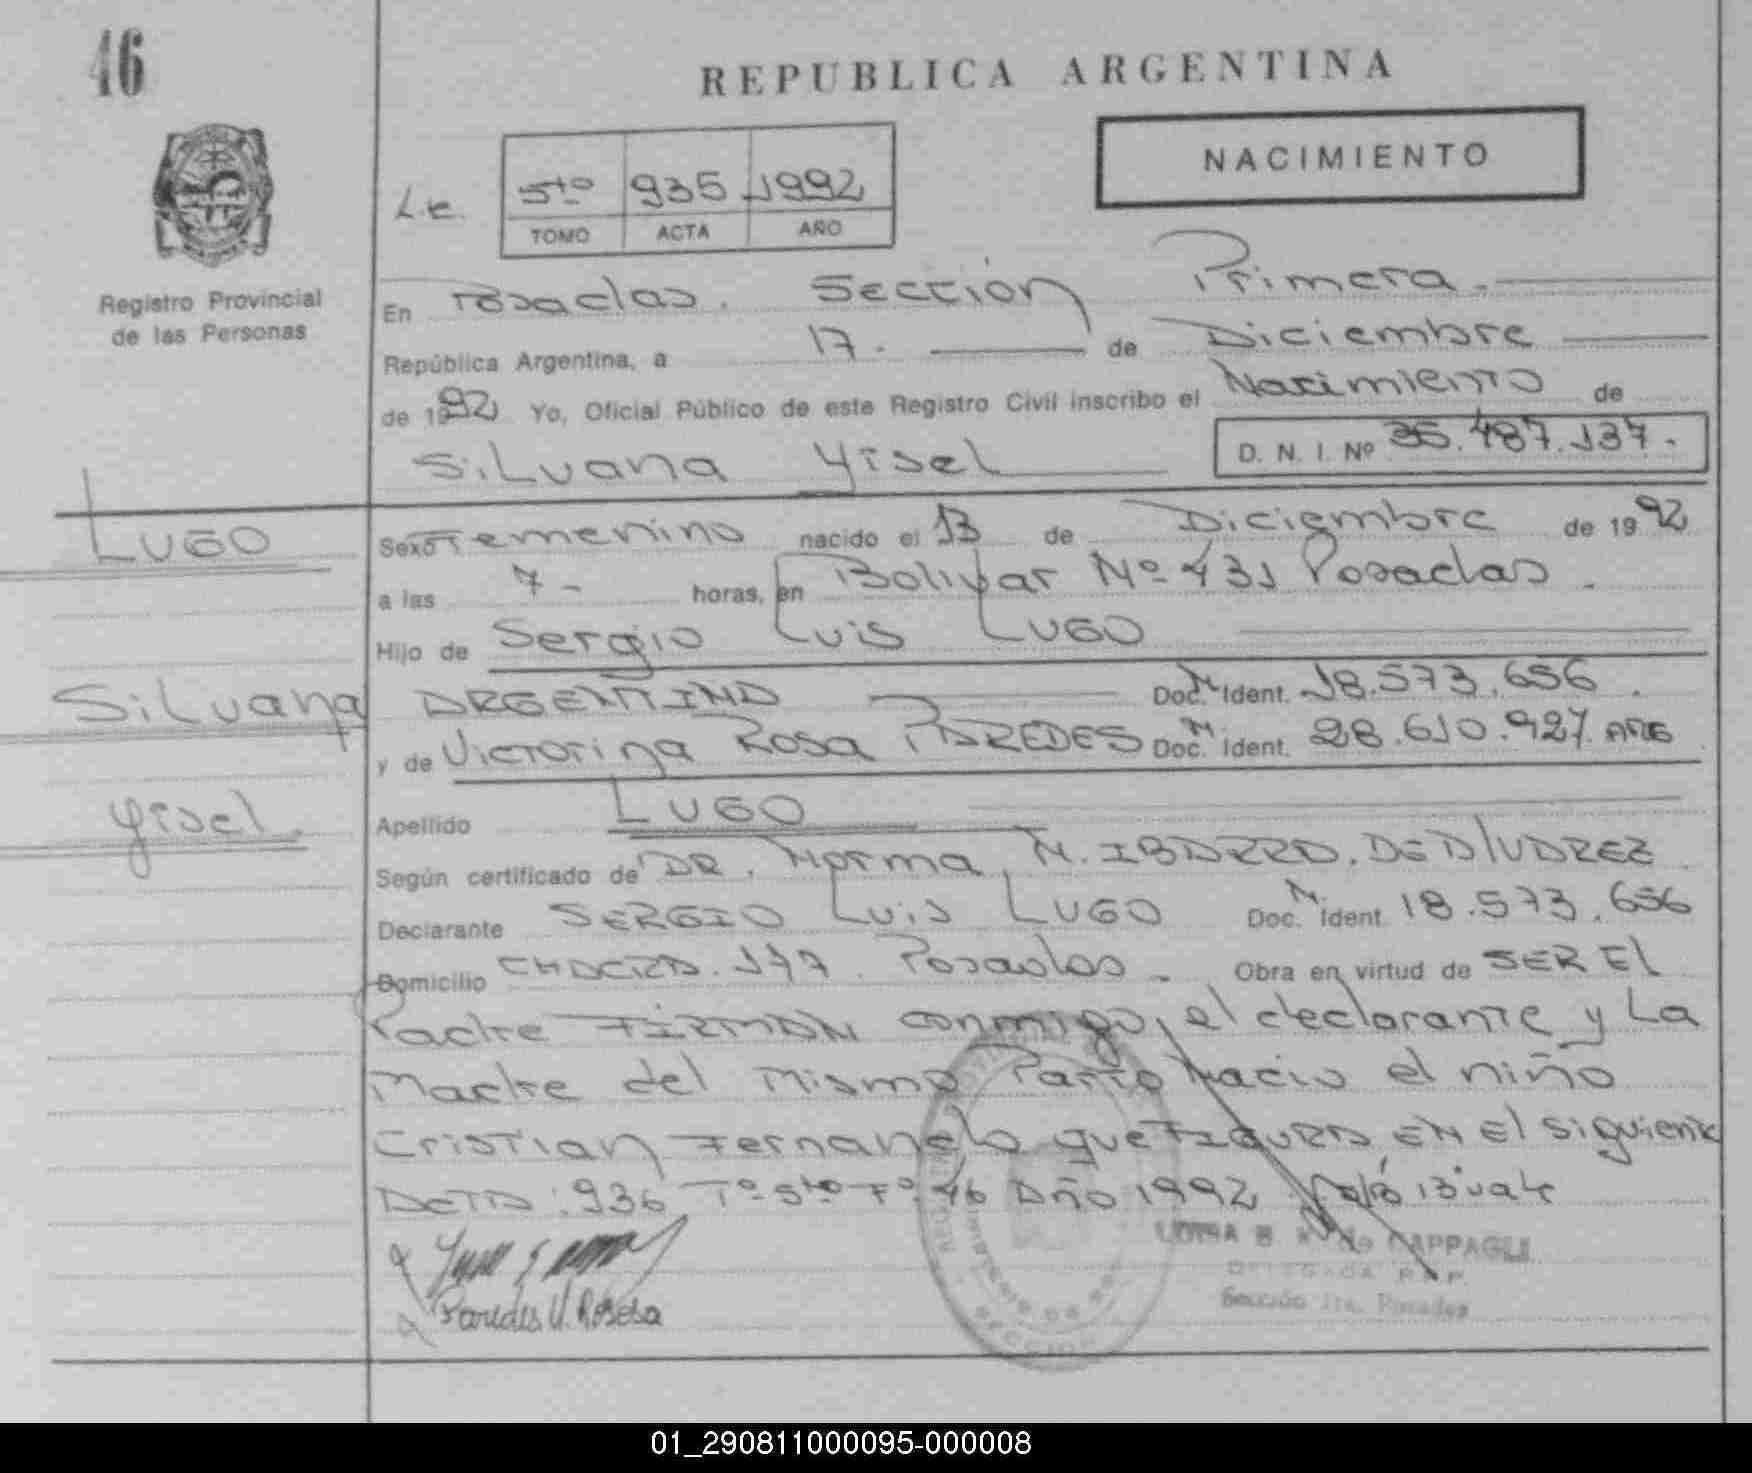 46
REPUBLICA ARGENTINA
NACIMIENTO
L.c. 5to 935 1992
TOMO ACTA AÑO
Registro Provincial
de las Personas
En Posadas. Sección Primera.
República Argentina, a 17. de Diciembre
de 1992 Yo, Oficial Público de este Registro Civil inscribo el Nacimiento de
D. N. I. Nº 36.487.137.
Silvana Yisel
LUGO
Sexo Femenino nacido el 13 de Diciembre de 1992
a las 7- horas, en Bolivar Nº 431 Posadas.
Hijo de Sergio Luis LUGO
Silvana
ARGENTINO Doc. Ident. 18.573.656.
y de Victorina Rosa PAREDES Doc. Ident. 28.610.927. ARG
Yisel
Apellido LUGO
Según certificado de DR. Norma N. IBARRA. DE ALVAREZ
Declarante SERGIO Luis LUGO Doc. Ident. 18.573.656
Domicilio CHACRA. 177. Posadas. Obra en virtud de SER El
Padre FIRMAN conmigo, el declarante y La
Madre del Mismo Parto Nacio el niño
Cristian Fernando que FIGURA EN El siguiente
ACTA: 936 Tº 5to Fº 46 Año 1992 13 vale
Paredes V. Rosa
CAPPAGLI
DELEGADA R.P.P.
Sección 1ra. Posadas
01_290811000095-000008